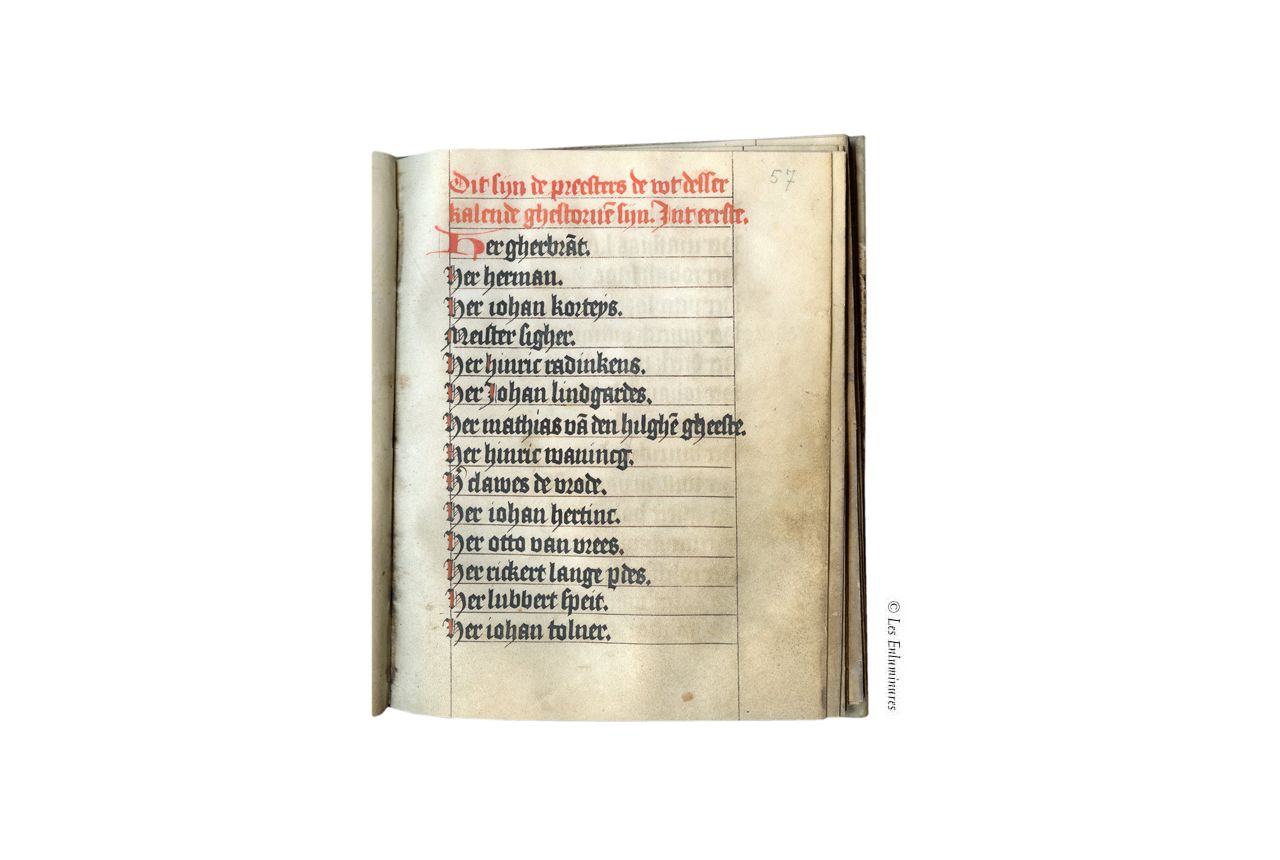 Dit sijn de preesters de wt desser
kalende ghestoruē sijn. Int eerste.
Her gherbrāt.
Her herman.
Her iohan korteys.
Meister sigher.
Her hinric radinkens.
Her Johan lindgardes.
Her mathias vā den hilghē gheeste.
Her hinric wanincg.
H' clawes de vrode.
Her iohan hertinc.
Her otto van vrees.
Her rickert lange pdes.
Her lubbert speit.
Her iohan tolner.
57
© Les Enluminures